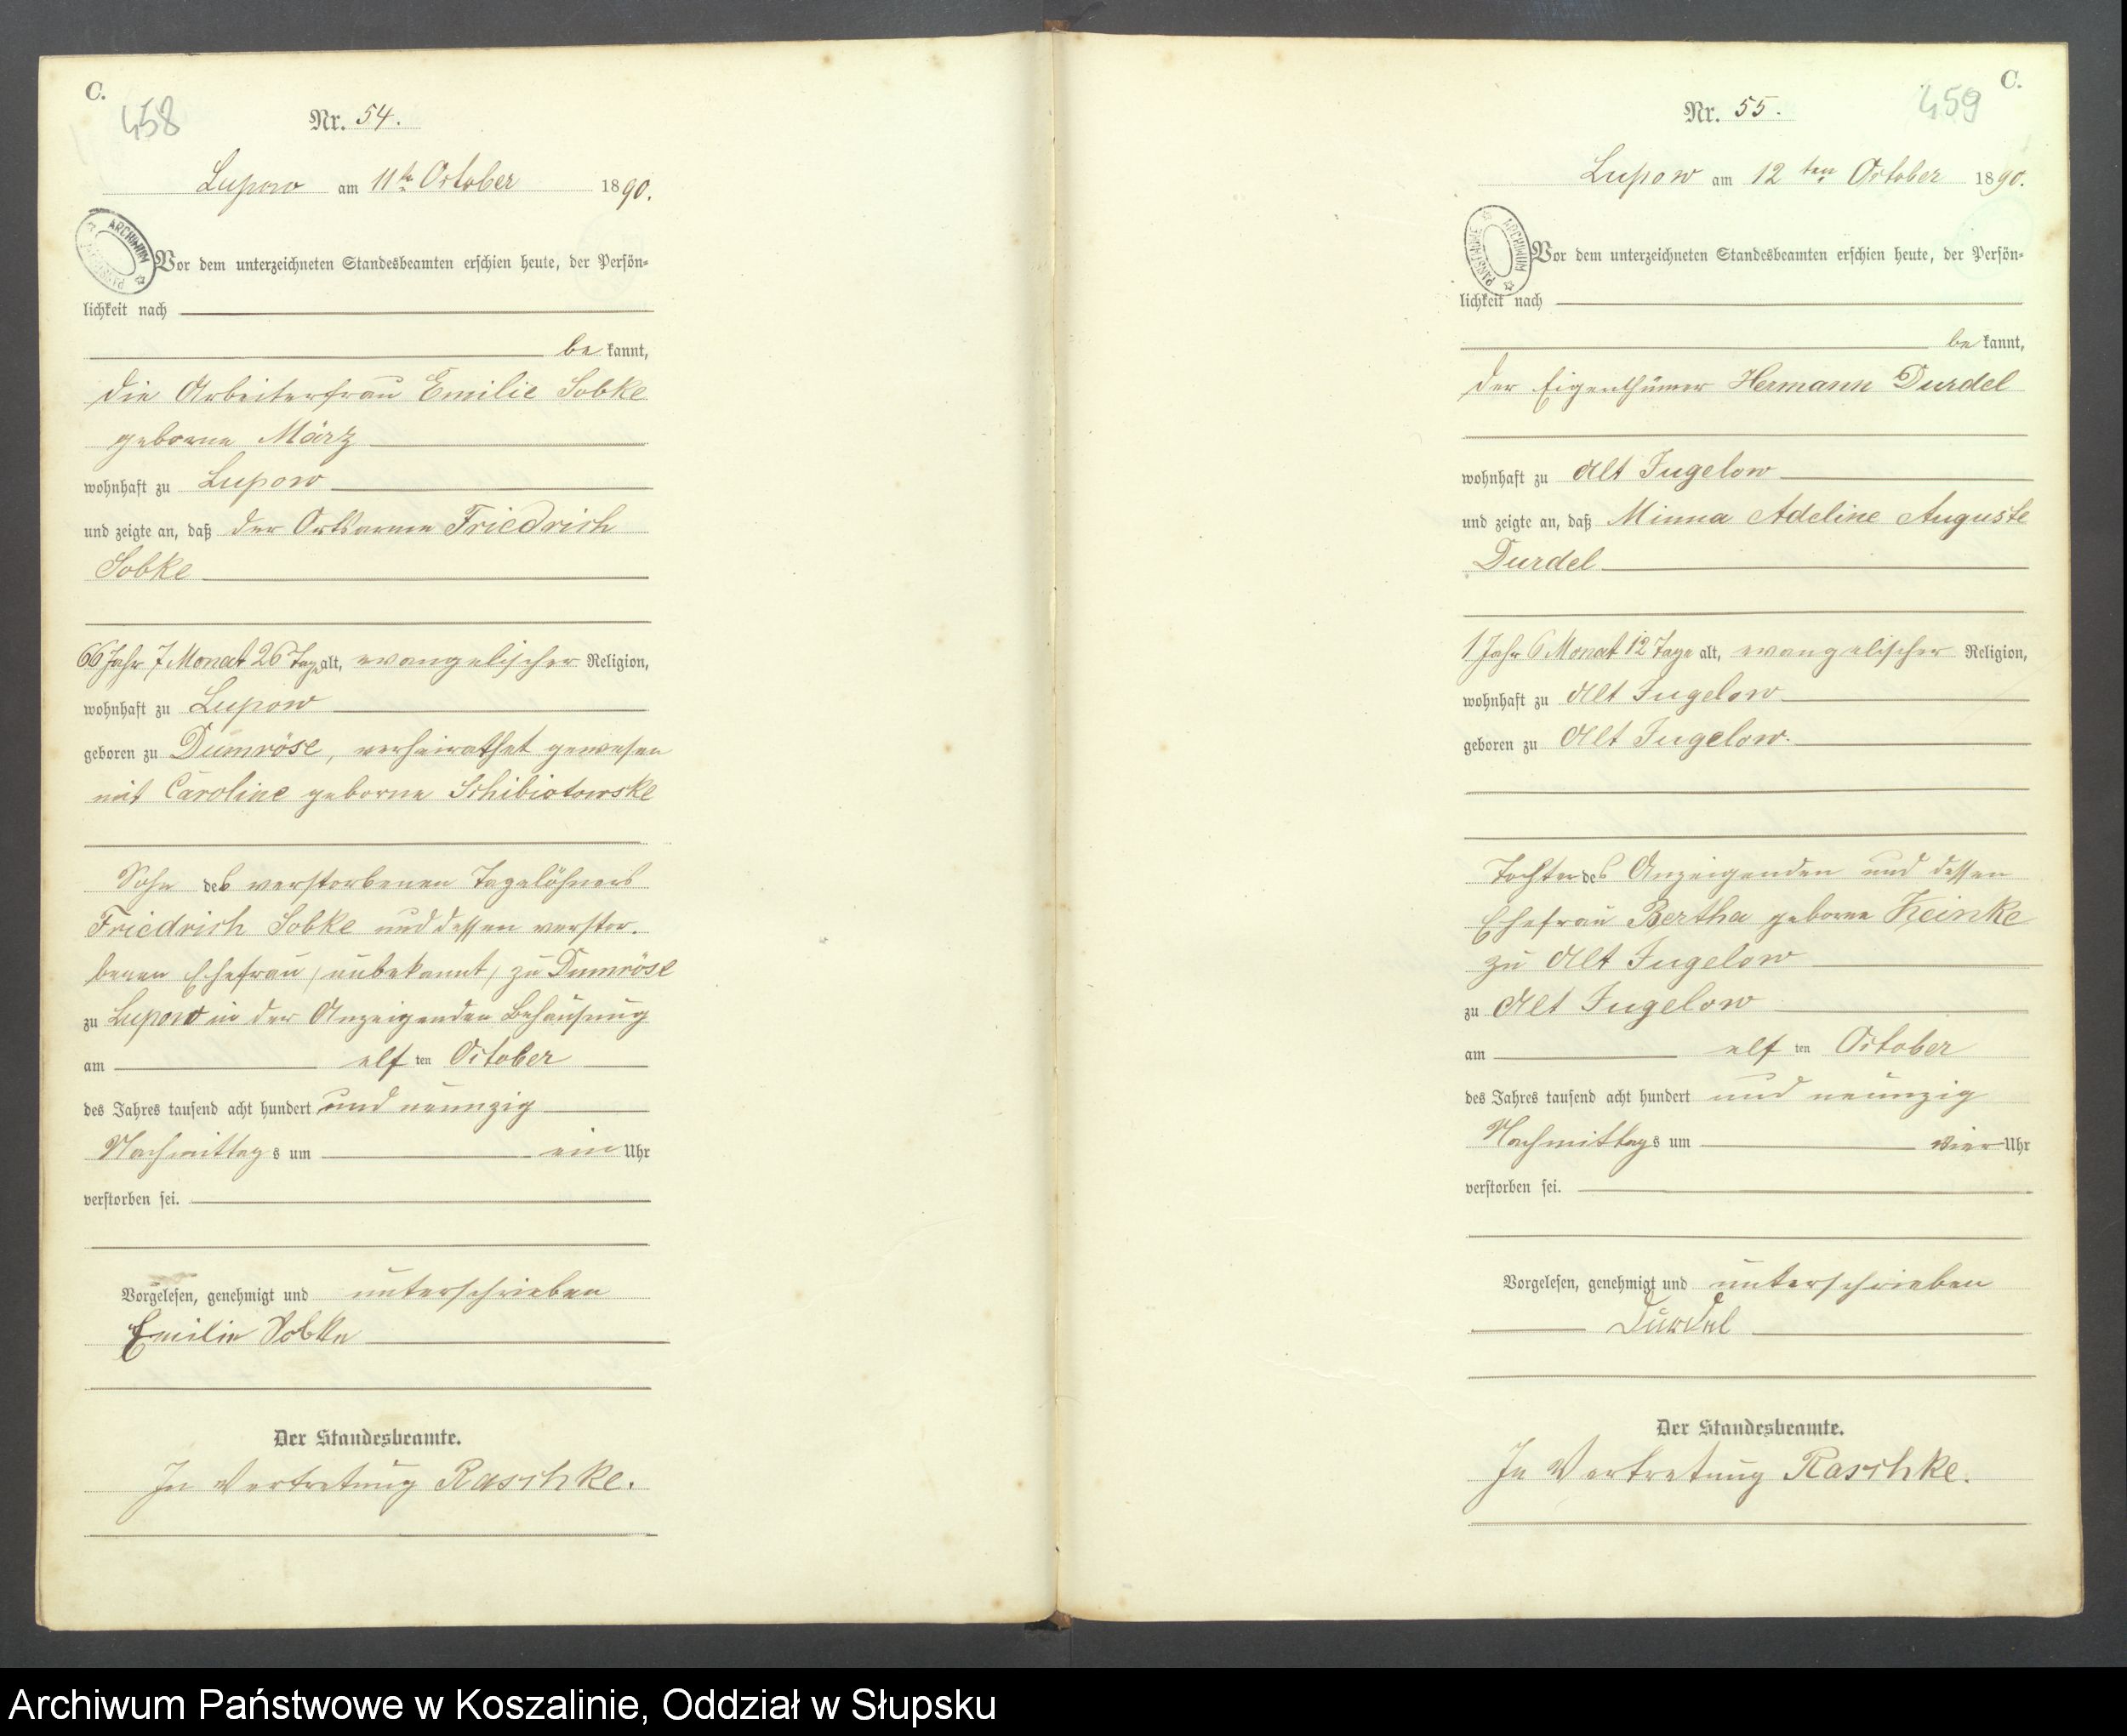 C.
458
Nr. 54.
Lupow am 11te October 1890.
ARCHIWUM PAŃSTWOWE
Vor dem unterzeichneten Standesbeamten erschien heute, der Persön-
lichkeit nach
be kannt,
die Arbeiterfrau Emilie Sobke
geborne März
wohnhaft zu Lupow
und zeigte an, daß der Ortsarme Friedrich
Sobke
66 Jahr 7 Monat 26 Tag alt, evangelischer Religion,
wohnhaft zu Lupow
geboren zu Dumröse, verheirathet gewesen
mit Caroline geborne Schibiotowske
Sohn des verstorbenen Tagelöhners
Friedrich Sobke und dessen verstor-
benen Ehefrau (unbekannt) zu Dumröse
zu Lupow in der Anzeigenden Behausung
am elf ten October
des Jahres tausend acht hundert und neunzig
Nachmittags um ein Uhr
verstorben sei.
Vorgelesen, genehmigt und unterschrieben
Emilie Sobke
Der Standesbeamte.
In Vertretung Raschke.
C.
459
Nr. 55.
Lupow am 12 ten October 1890.
ARCHIWUM PAŃSTWOWE
Vor dem unterzeichneten Standesbeamten erschien heute, der Persön-
lichkeit nach
be kannt,
der Eigenthümer Hermann Durdel
wohnhaft zu Alt Jugelow
und zeigte an, daß Minna Adeline Auguste
Durdel
1 Jahr 6 Monat 12 Tage alt, evangelischer Religion,
wohnhaft zu Alt Jugelow
geboren zu Alt Jugelow.
Tochter des Anzeigenden und dessen
Ehefrau Bertha geborne Heinke
zu Alt Jugelow
zu Alt Jugelow
am elf ten October
des Jahres tausend acht hundert und neunzig
Nachmittags um vier Uhr
verstorben sei.
Vorgelesen, genehmigt und unterschrieben
Durdel
Der Standesbeamte.
In Vertretung Raschke.
Archiwum Państwowe w Koszalinie, Oddział w Słupsku